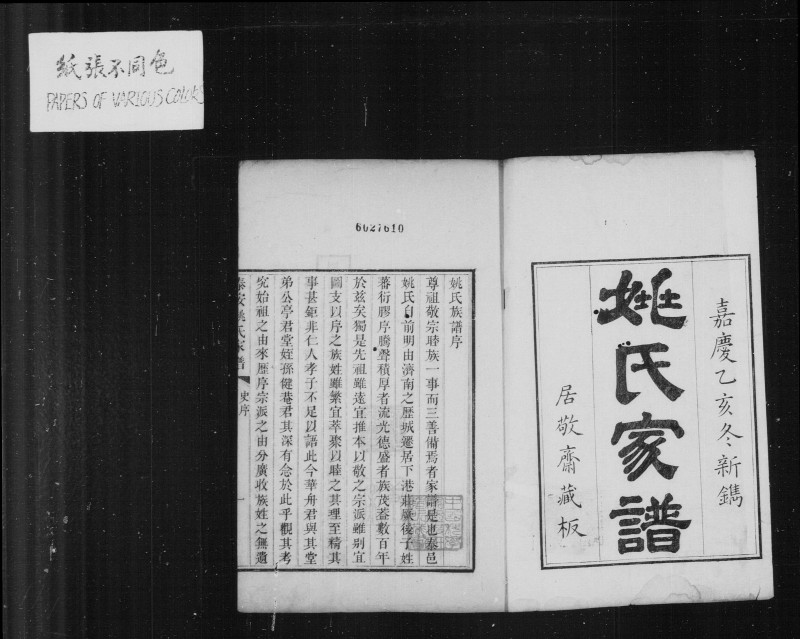 紙張不同色
PAPERS OF VARIOUS COLORS
6027610
嘉慶乙亥冬新鐫
姚氏家譜
居敬齋藏板
姚氏族譜序
尊祖敬宗睦族一事而三善備焉者家譜是也泰邑
姚氏自前明由濟南之歷城遷居下港莊厥後子姓
蕃衍膠序騰聲積厚者流光德盛者族茂葢數百年
於茲矣獨是先祖雖遠宜推本以敬之宗派雖别宜
圖支以序之族姓雖繁宜萃聚以睦之其理至精其
事甚鉅非仁人孝子不足以語此今華舟君與其堂
弟公亭君堂姪孫健菴君其深有念於此乎觀其考
究始祖之由來歷序宗派之由分廣收族姓之無遺
泰安姚氏家譜
史序
一